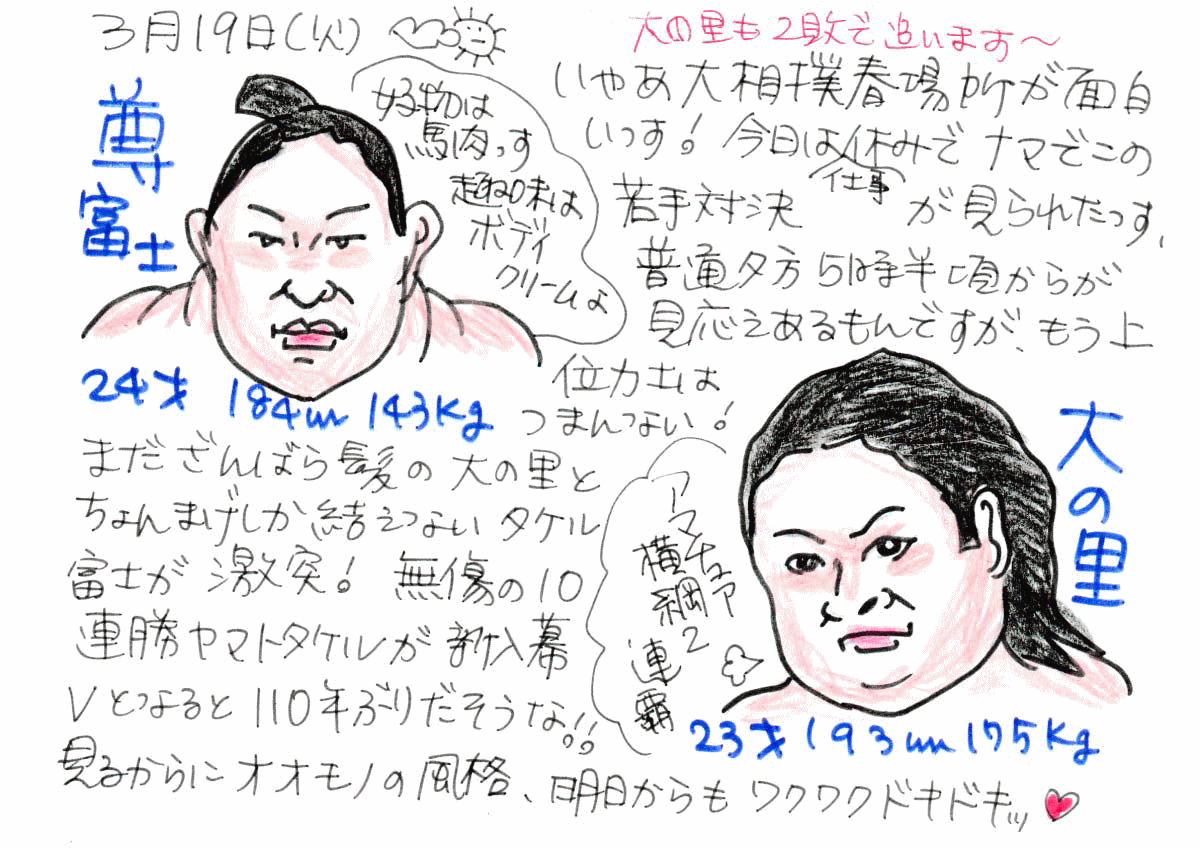 3月19日(火)
大の里も2敗で追います～
いやあ大相撲春場所が面白
いっす！今日は休みでナマでこの
仕事
若手対決が見られたっす、
普通夕方5時半頃からが
見応えあるもんですが、もう上
位力士は
つまんない！
尊
富士
好物は
馬肉っす
趣味は
ボディ
クリームよ
24才 184cm 143Kg
まだざんばら髪の大の里と
ちょんまげしか結えないタケル
富士が激突！無傷の10
連勝ヤマトタケルが新入幕
Vとなると110年ぶりだそうな!!
見るからにオオモノの風格、明日からもワクワクドキドキッ
大の里
アマチュア
横綱2
連覇
23才 193cm 175Kg